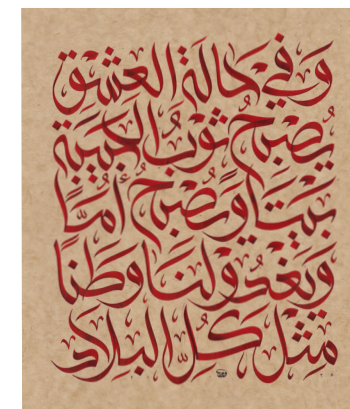 وَفي حَالَةِ العِشْقِ
يُصْبِحُ ثَوْبُ الحَبِيبَةِ
بَيْتًا وَيُصْبِحُ أُمًّا
وَيَغْدُو لَنَا وَطَنًا
مِثْلَ كُلِّ البِلَادِ